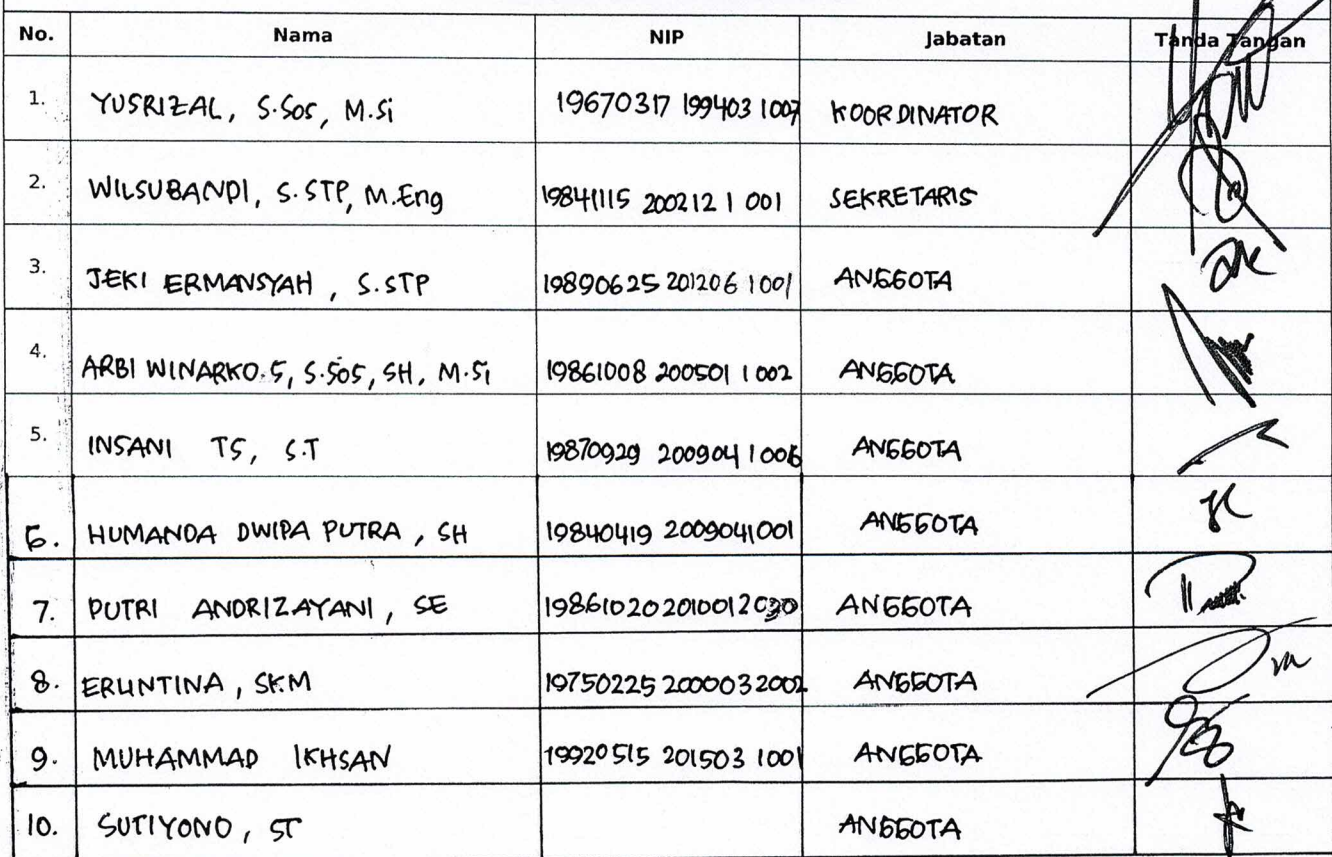 No. Nama NIP Jabatan Tanda Tangan
1. YUSRIZAL, S.Sos, M.Si 19670317 199403 1007 KOORDINATOR
2. WILSUBANDI, S.STP, M.Eng 19841115 200212 1 001 SEKRETARIS
3. JEKI ERMANSYAH, S.STP 19890625 201206 1001 ANGGOTA
4. ARBI WINARKO.S, S.Sos, SH, M.Si 19861008 200501 1 002 ANGGOTA
5. INSANI TS, S.T 19870929 200904 1 006 ANGGOTA
6. HUMANDA DWIPA PUTRA, SH 19840419 2009041001 ANGGOTA
7. PUTRI ANDRIZAYANI, SE ANGGOTA
8. ERUNTINA, SKM 19750225 2000032002 ANGGOTA
9. MUHAMMAD IKHSAN 19920515 201503 1001 ANGGOTA
10. SUTIYONO, ST ANGGOTA